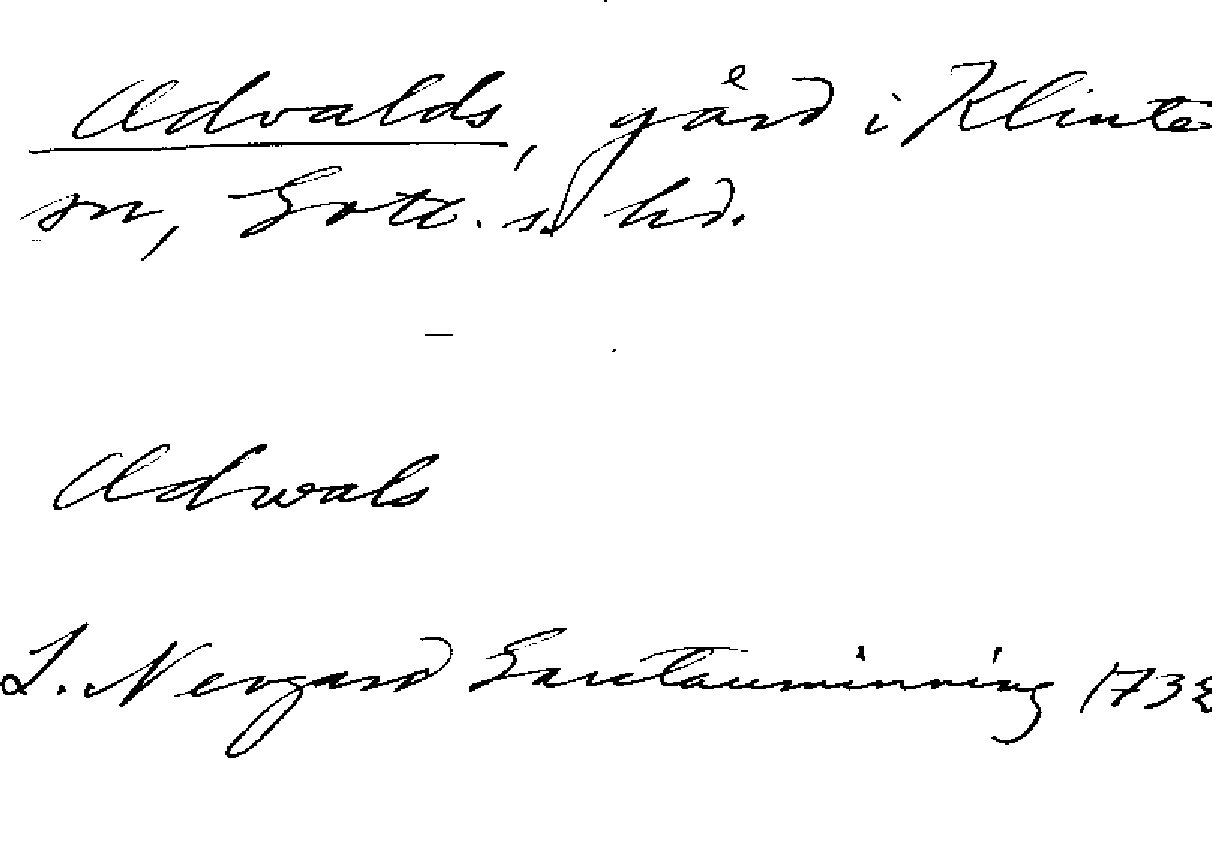 Advalds, gård i Klinte
sn, Gotl. s. hd.
Adwals
L. Neogard Gautauminning 1732